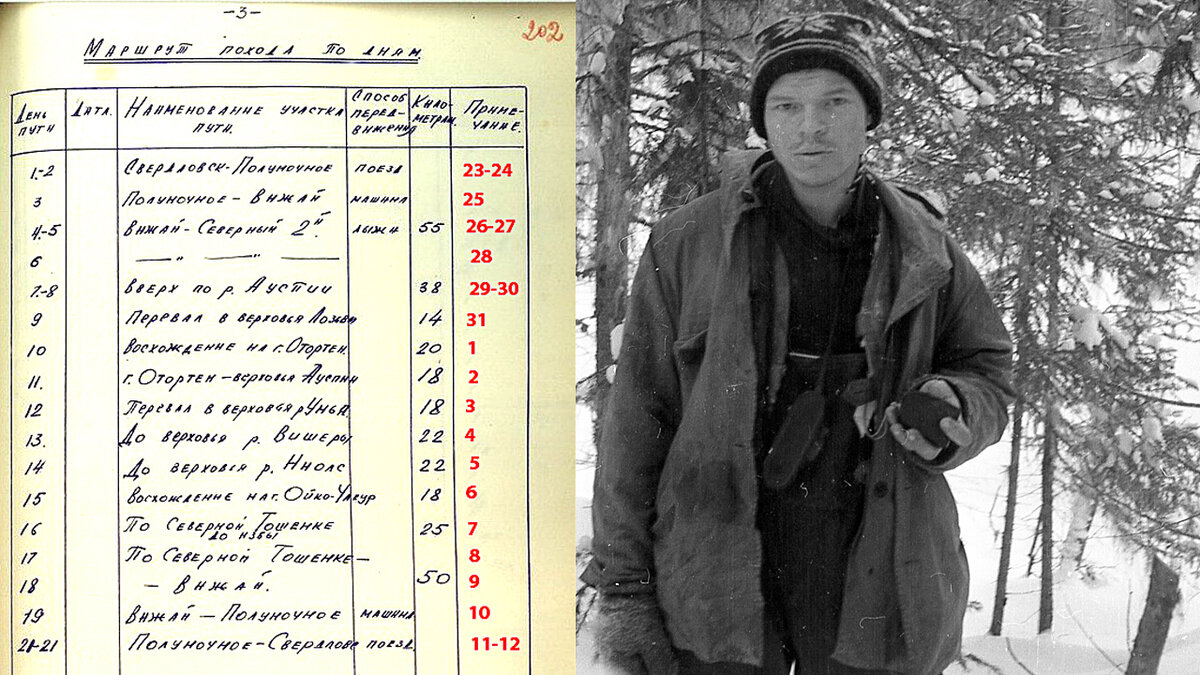 —3—
202
Маршрут похода по дням.
День пути Дата. Наименование участка пути. Способ передвижения Километраж. Примечание.
1.-2 Свердловск-Полуночное поезд 23-24
3 Полуночное-Вижай машина 25
4.-5 Вижай-Северный 2й. лыжи 55 26-27
6 — " — — 28
7.-8 Вверх по р. Ауспии 38 29-30
9 Перевал в верховья Лозьвы 14 31
10 Восхождение на г. Отортен. 20 1
11. г. Отортен-верховья Ауспии 18 2
12 Перевал в верховья р Унья 18 3
13. До верховья р. Вишеры 22 4
14 До верховья р. Ниолс 22 5
15 Восхождение на г. Ойко-Чакур 18 6
16 По Северной Тошенке до избы 25 7
17 По Северной Тошенке— 8
18 — Вижай. 50 9
19 Вижай—Полуночное машина 10
20-21 Полуночное-Свердловс поезд 11-12